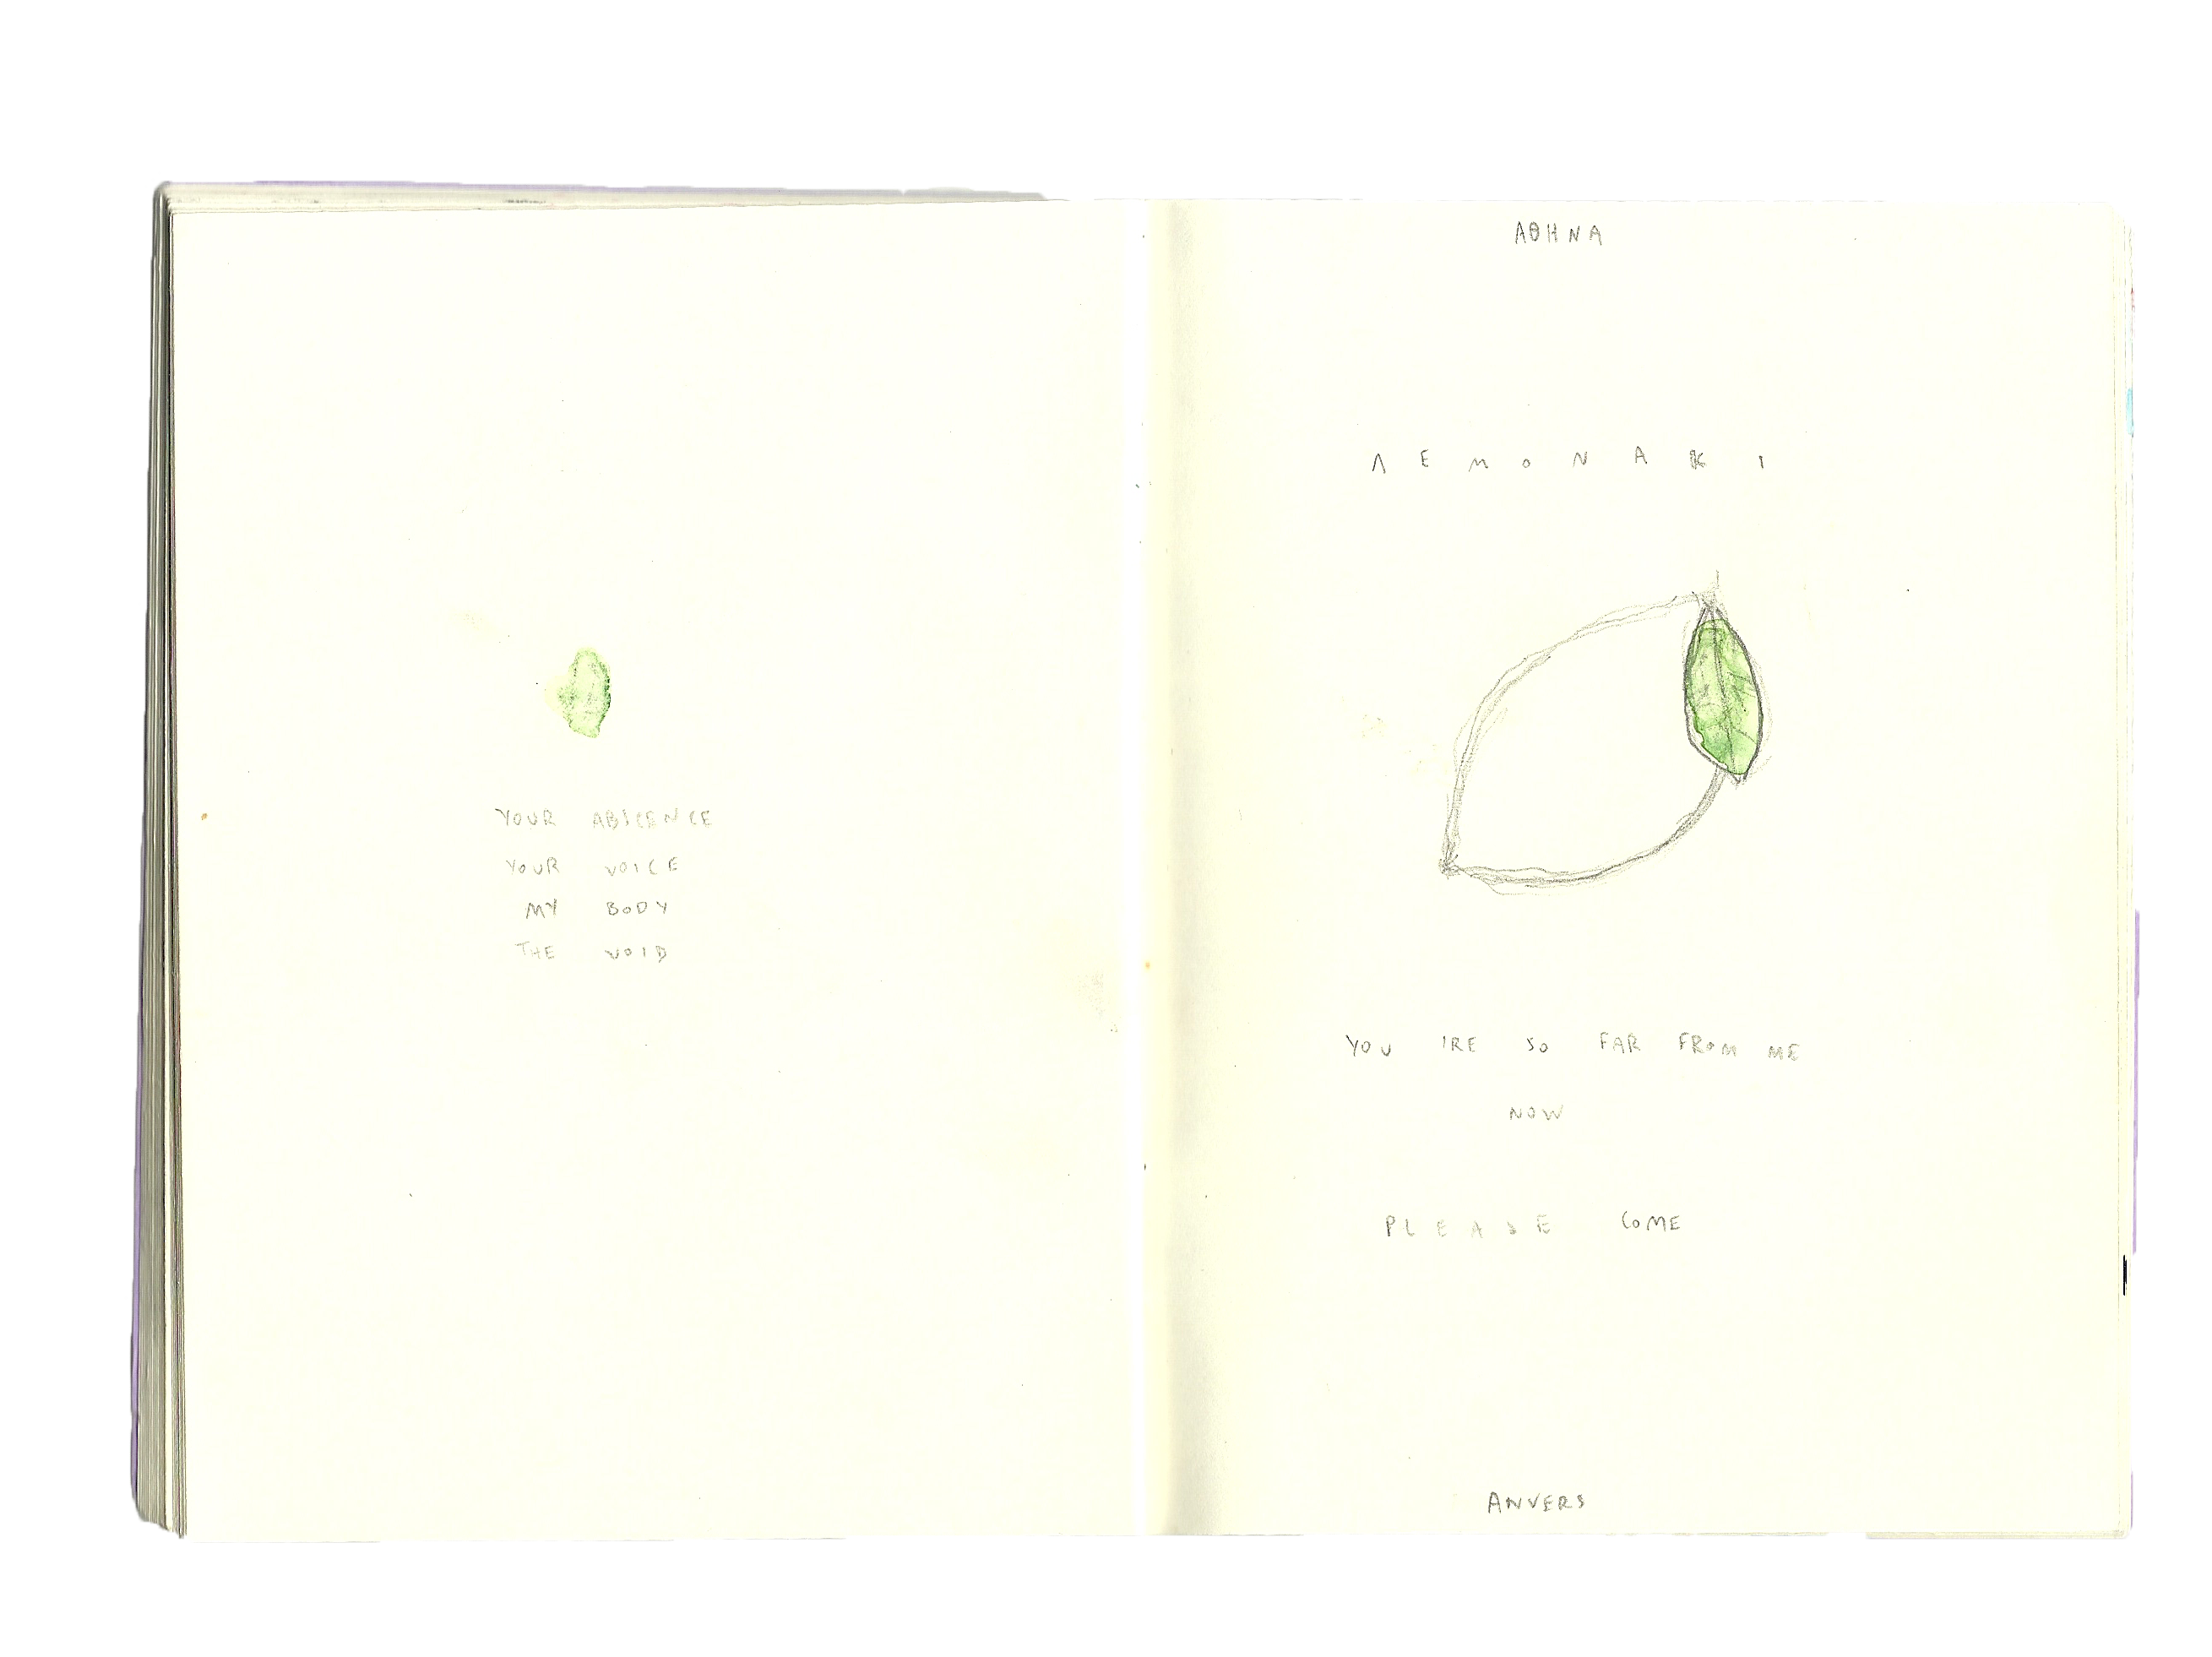 YOUR ABSCENCE
YOUR VOICE
MY BODY
THE VOID
ΑΘΗΝΑ
ΛΕΜΟΝΑΚΙ
YOU 'RE SO FAR FROM ME
NOW
PLEASE COME
ANVERS